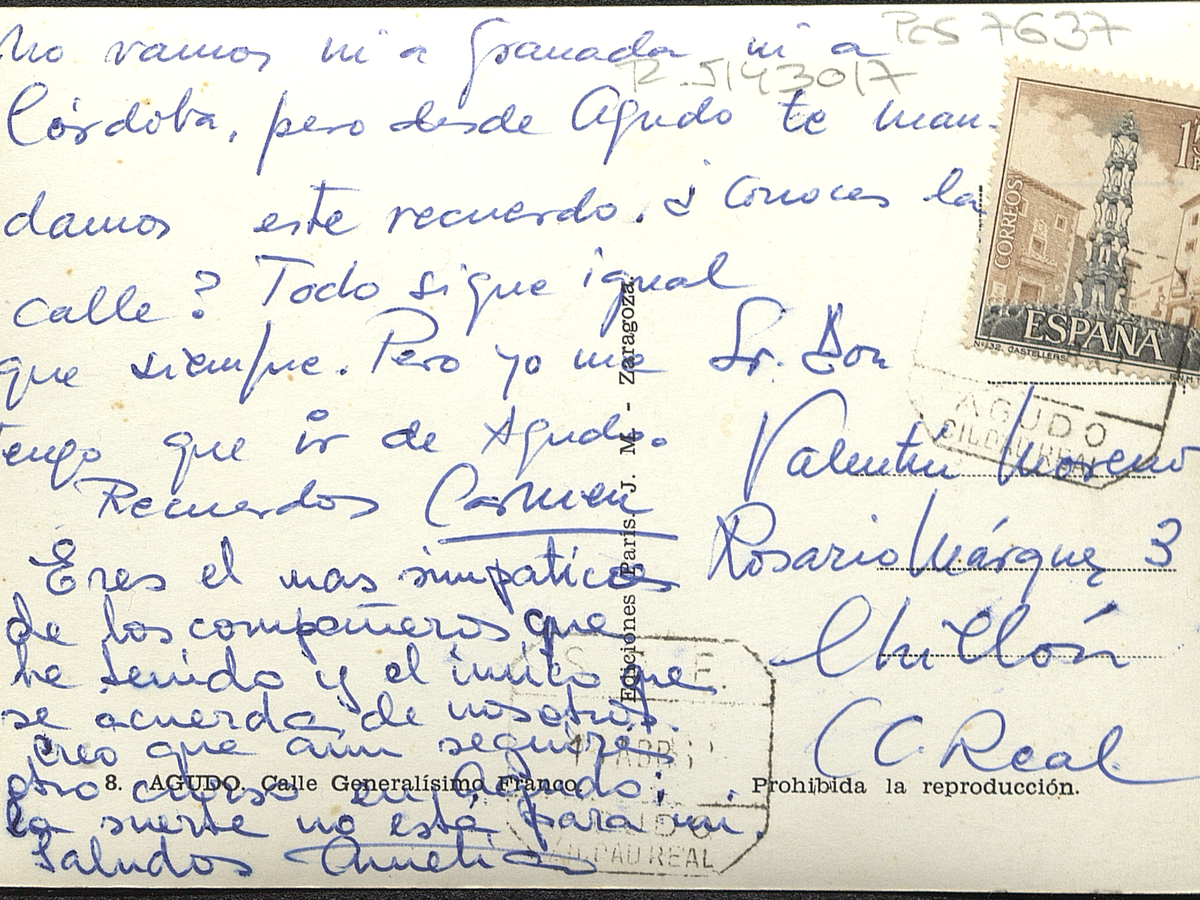 No vamos ni a Granada ni a
Córdoba, pero desde Agudo te man-
damos este recuerdo. ¿Conoces la
calle? Todo sigue igual
que siempre. Pero yo me
tengo que ir de Agudo.
Recuerdos Carmen
Eres el mas simpatico
de los compañeros que
he tenido y el único que
se acuerda de nosotros.
Creo que aun seguiré
otro curso en Agudo;
la suerte no está para mi.
Saludos Amelia
8. AGUDO. Calle Generalísimo Franco.
Ediciones París. J. M. - Zaragoza.
PCS 7637
R. 5143017
CORREOS
ESPAÑA
Nº 32. CASTELLERS
AGUDO
CIUDAD REAL
Sr. Don
Valentín Moreno
Rosario Márquez 3
Chillón
C. Real
Prohibida la reproducción.
ABR
AGUDO
CIUDAD REAL